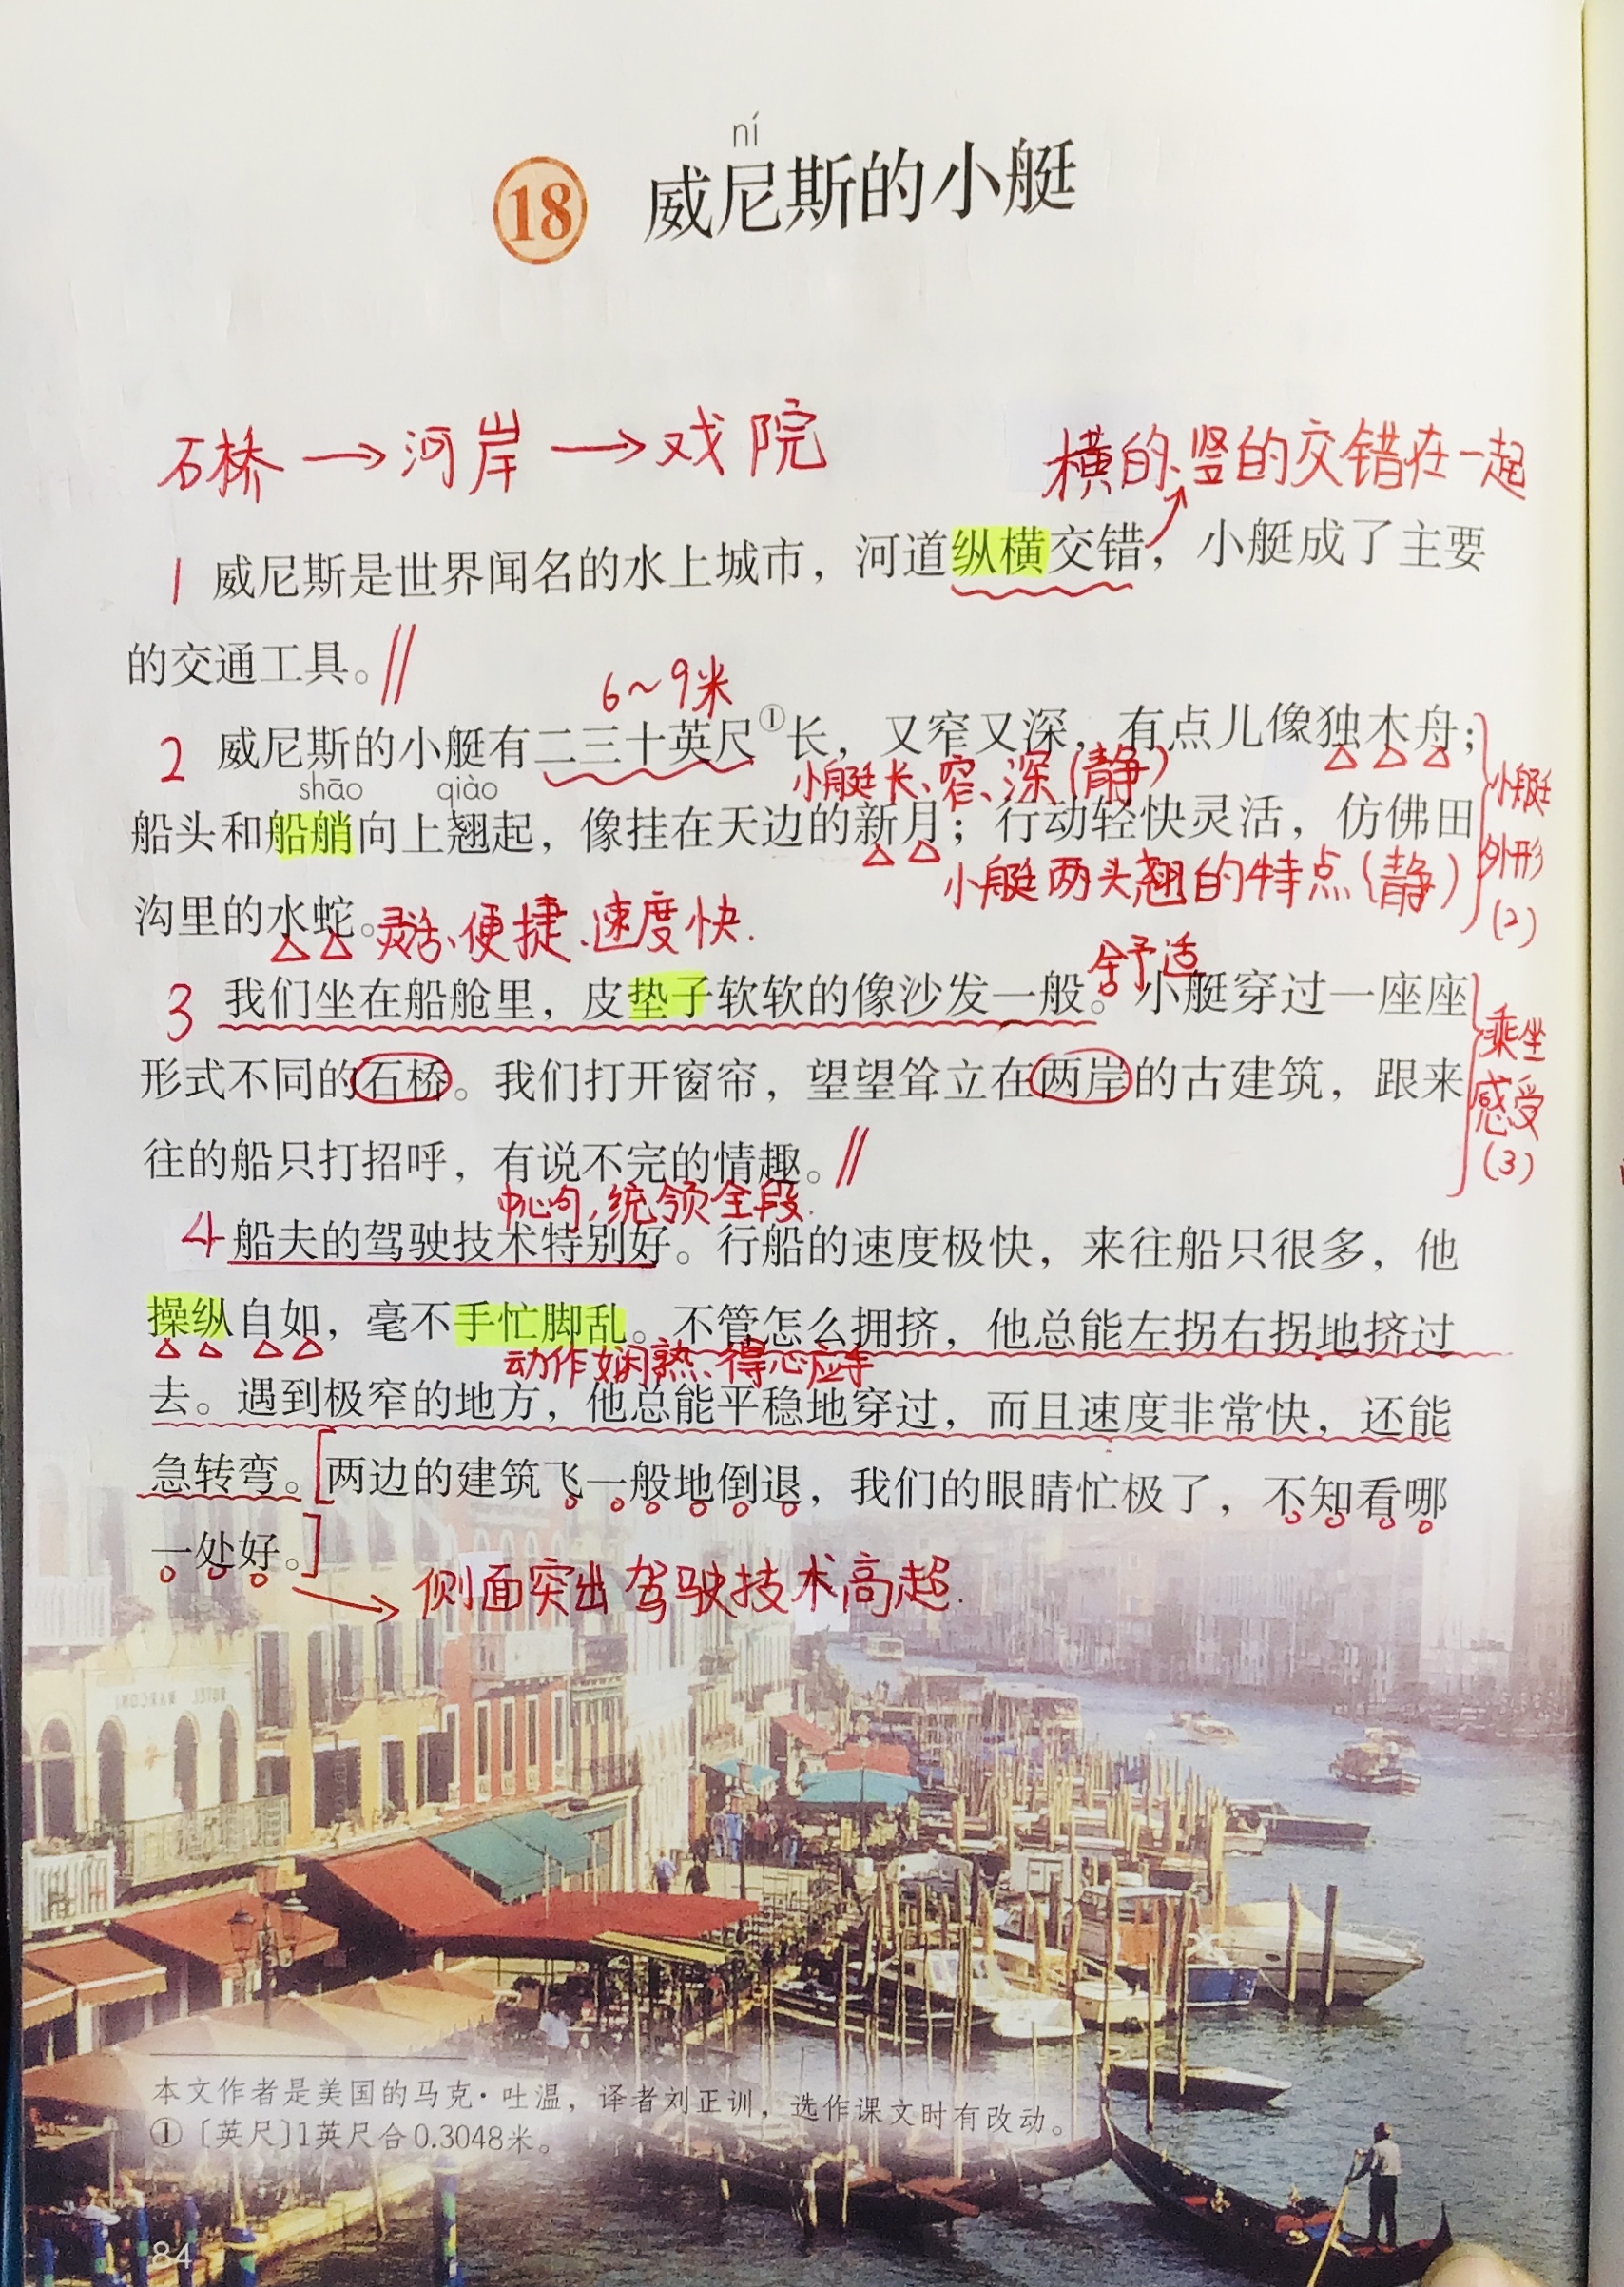 ní
18 威尼斯的小艇
石桥→河岸→戏院
横的、竖的交错在一起
1 威尼斯是世界闻名的水上城市，河道纵横交错，小艇成了主要
的交通工具。
6～9米
2 威尼斯的小艇有二三十英尺①长，又窄又深，有点儿像独木舟；
小艇长、窄、深(静)
小艇
外形
(2)
shāo qiào
船头和船艄向上翘起，像挂在天边的新月；行动轻快灵活，仿佛田
小艇两头翘的特点(静)
沟里的水蛇。
灵活、便捷、速度快.
舒适
3 我们坐在船舱里，皮垫子软软的像沙发一般。小艇穿过一座座
乘坐
感受
(3)
形式不同的石桥。我们打开窗帘，望望耸立在两岸的古建筑，跟来
往的船只打招呼，有说不完的情趣。
中心句，统领全段.
4 船夫的驾驶技术特别好。行船的速度极快，来往船只很多，他
操纵自如，毫不手忙脚乱。不管怎么拥挤，他总能左拐右拐地挤过
动作娴熟、得心应手
去。遇到极窄的地方，他总能平稳地穿过，而且速度非常快，还能
急转弯。[两边的建筑飞一般地倒退，我们的眼睛忙极了，不知看哪
一处好。]
→侧面突出驾驶技术高超.
本文作者是美国的马克·吐温，译者刘正训，选作课文时有改动。
①〔英尺〕1英尺合0.3048米。
84